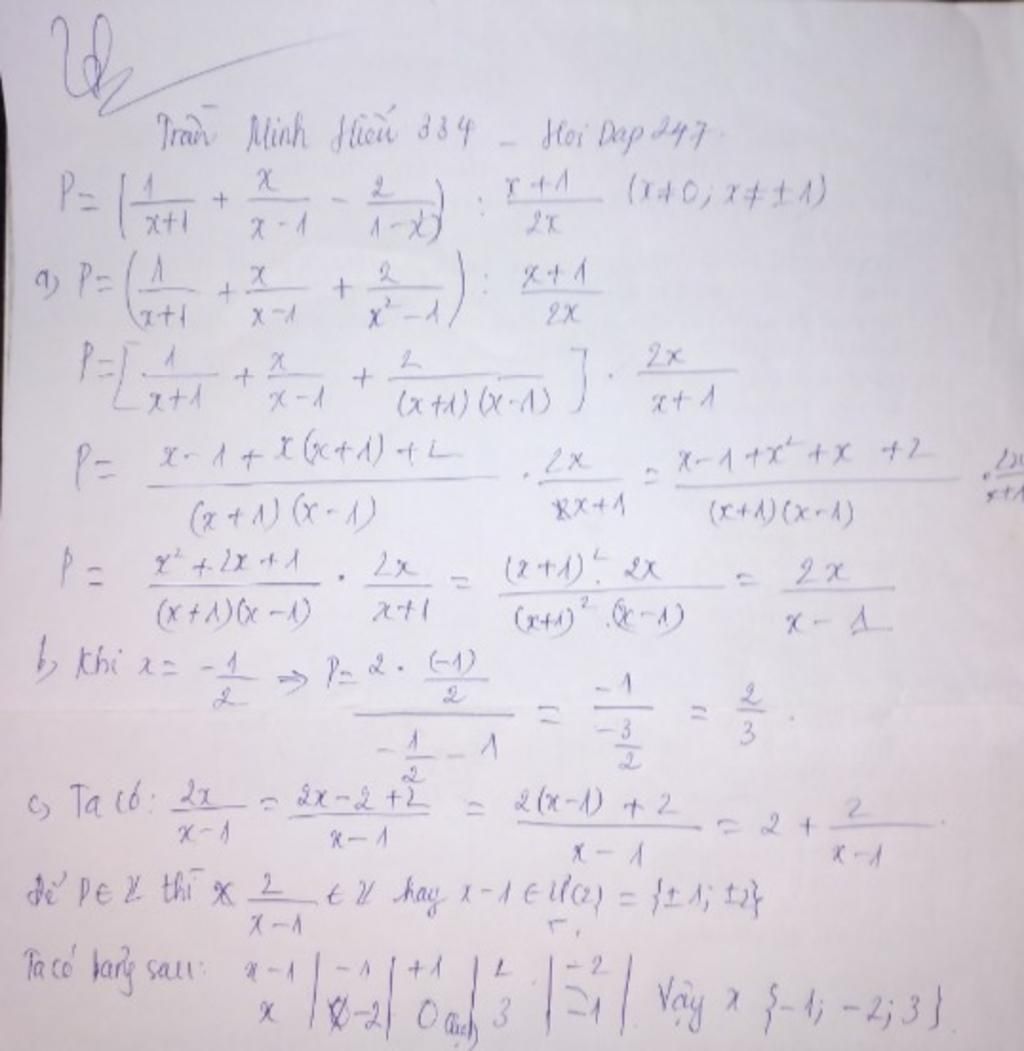 Trần Minh Hiếu 334 - Hoi Dap 247.
P = (1/(x+1) + x/(x-1) - 2/(1-x²)) : (x+1)/(2x) (x≠0; x≠±1)
a) P = (1/(x+1) + x/(x-1) + 2/(x²-1)) : (x+1)/(2x)
P = [1/(x+1) + x/(x-1) + 2/((x+1)(x-1))] . 2x/(x+1)
P = (x-1+x(x+1)+2)/((x+1)(x-1)) . 2x/(x+1) = (x-1+x²+x+2)/((x+1)(x-1)) . 2x/(x+1)
P = (x²+2x+1)/((x+1)(x-1)) . 2x/(x+1) = ((x+1)².2x)/((x+1)².(x-1)) = 2x/(x-1)
b) Khi x = -1/2 => P = (2.(-1)/2)/(-1/2 - 1) = (-1)/(-3/2) = 2/3.
c) Ta có: 2x/(x-1) = (2x-2+2)/(x-1) = (2(x-1)+2)/(x-1) = 2 + 2/(x-1).
Để P ∈ Z thì 2/(x-1) ∈ Z hay x-1 ∈ Ư(2) = {±1; ±2}
Ta có bảng sau: x-1 | -1 | +1 | 2 | -2 |
x | -2 | 0 | 3 | -1 | Vậy x {-1; -2; 3}.